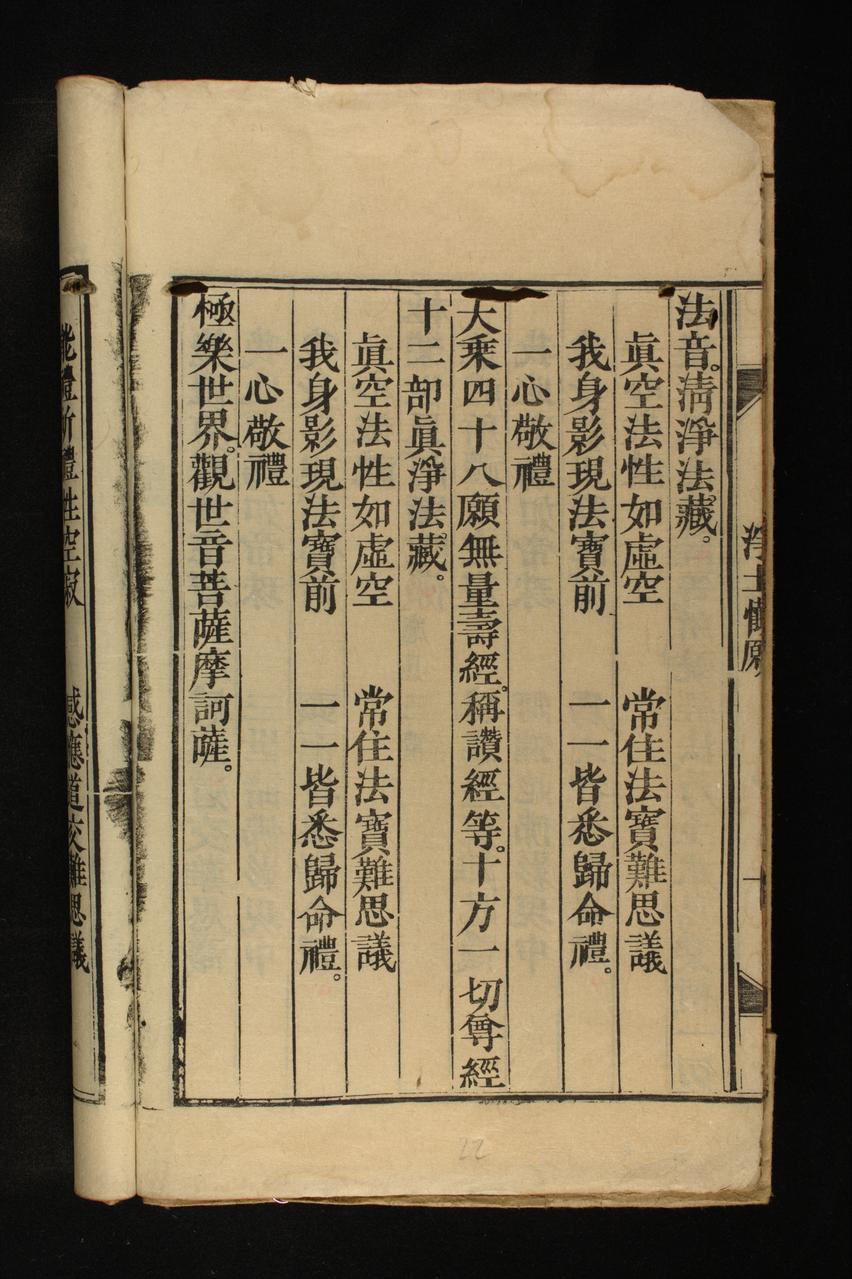 淨土懺願
十
法音。清淨法藏。
眞空法性如虛空　常住法寶難思議
我身影現法寶前　一一皆悉歸命禮。
一心敬禮
大乘四十八願無量壽經。稱讚經等。十方一切尊經
十二部眞淨法藏。
眞空法性如虛空　常住法寶難思議
我身影現法寶前　一一皆悉歸命禮。
一心敬禮
極樂世界。觀世音菩薩摩訶薩。
能禮所禮性空寂　感應道交難思議
22